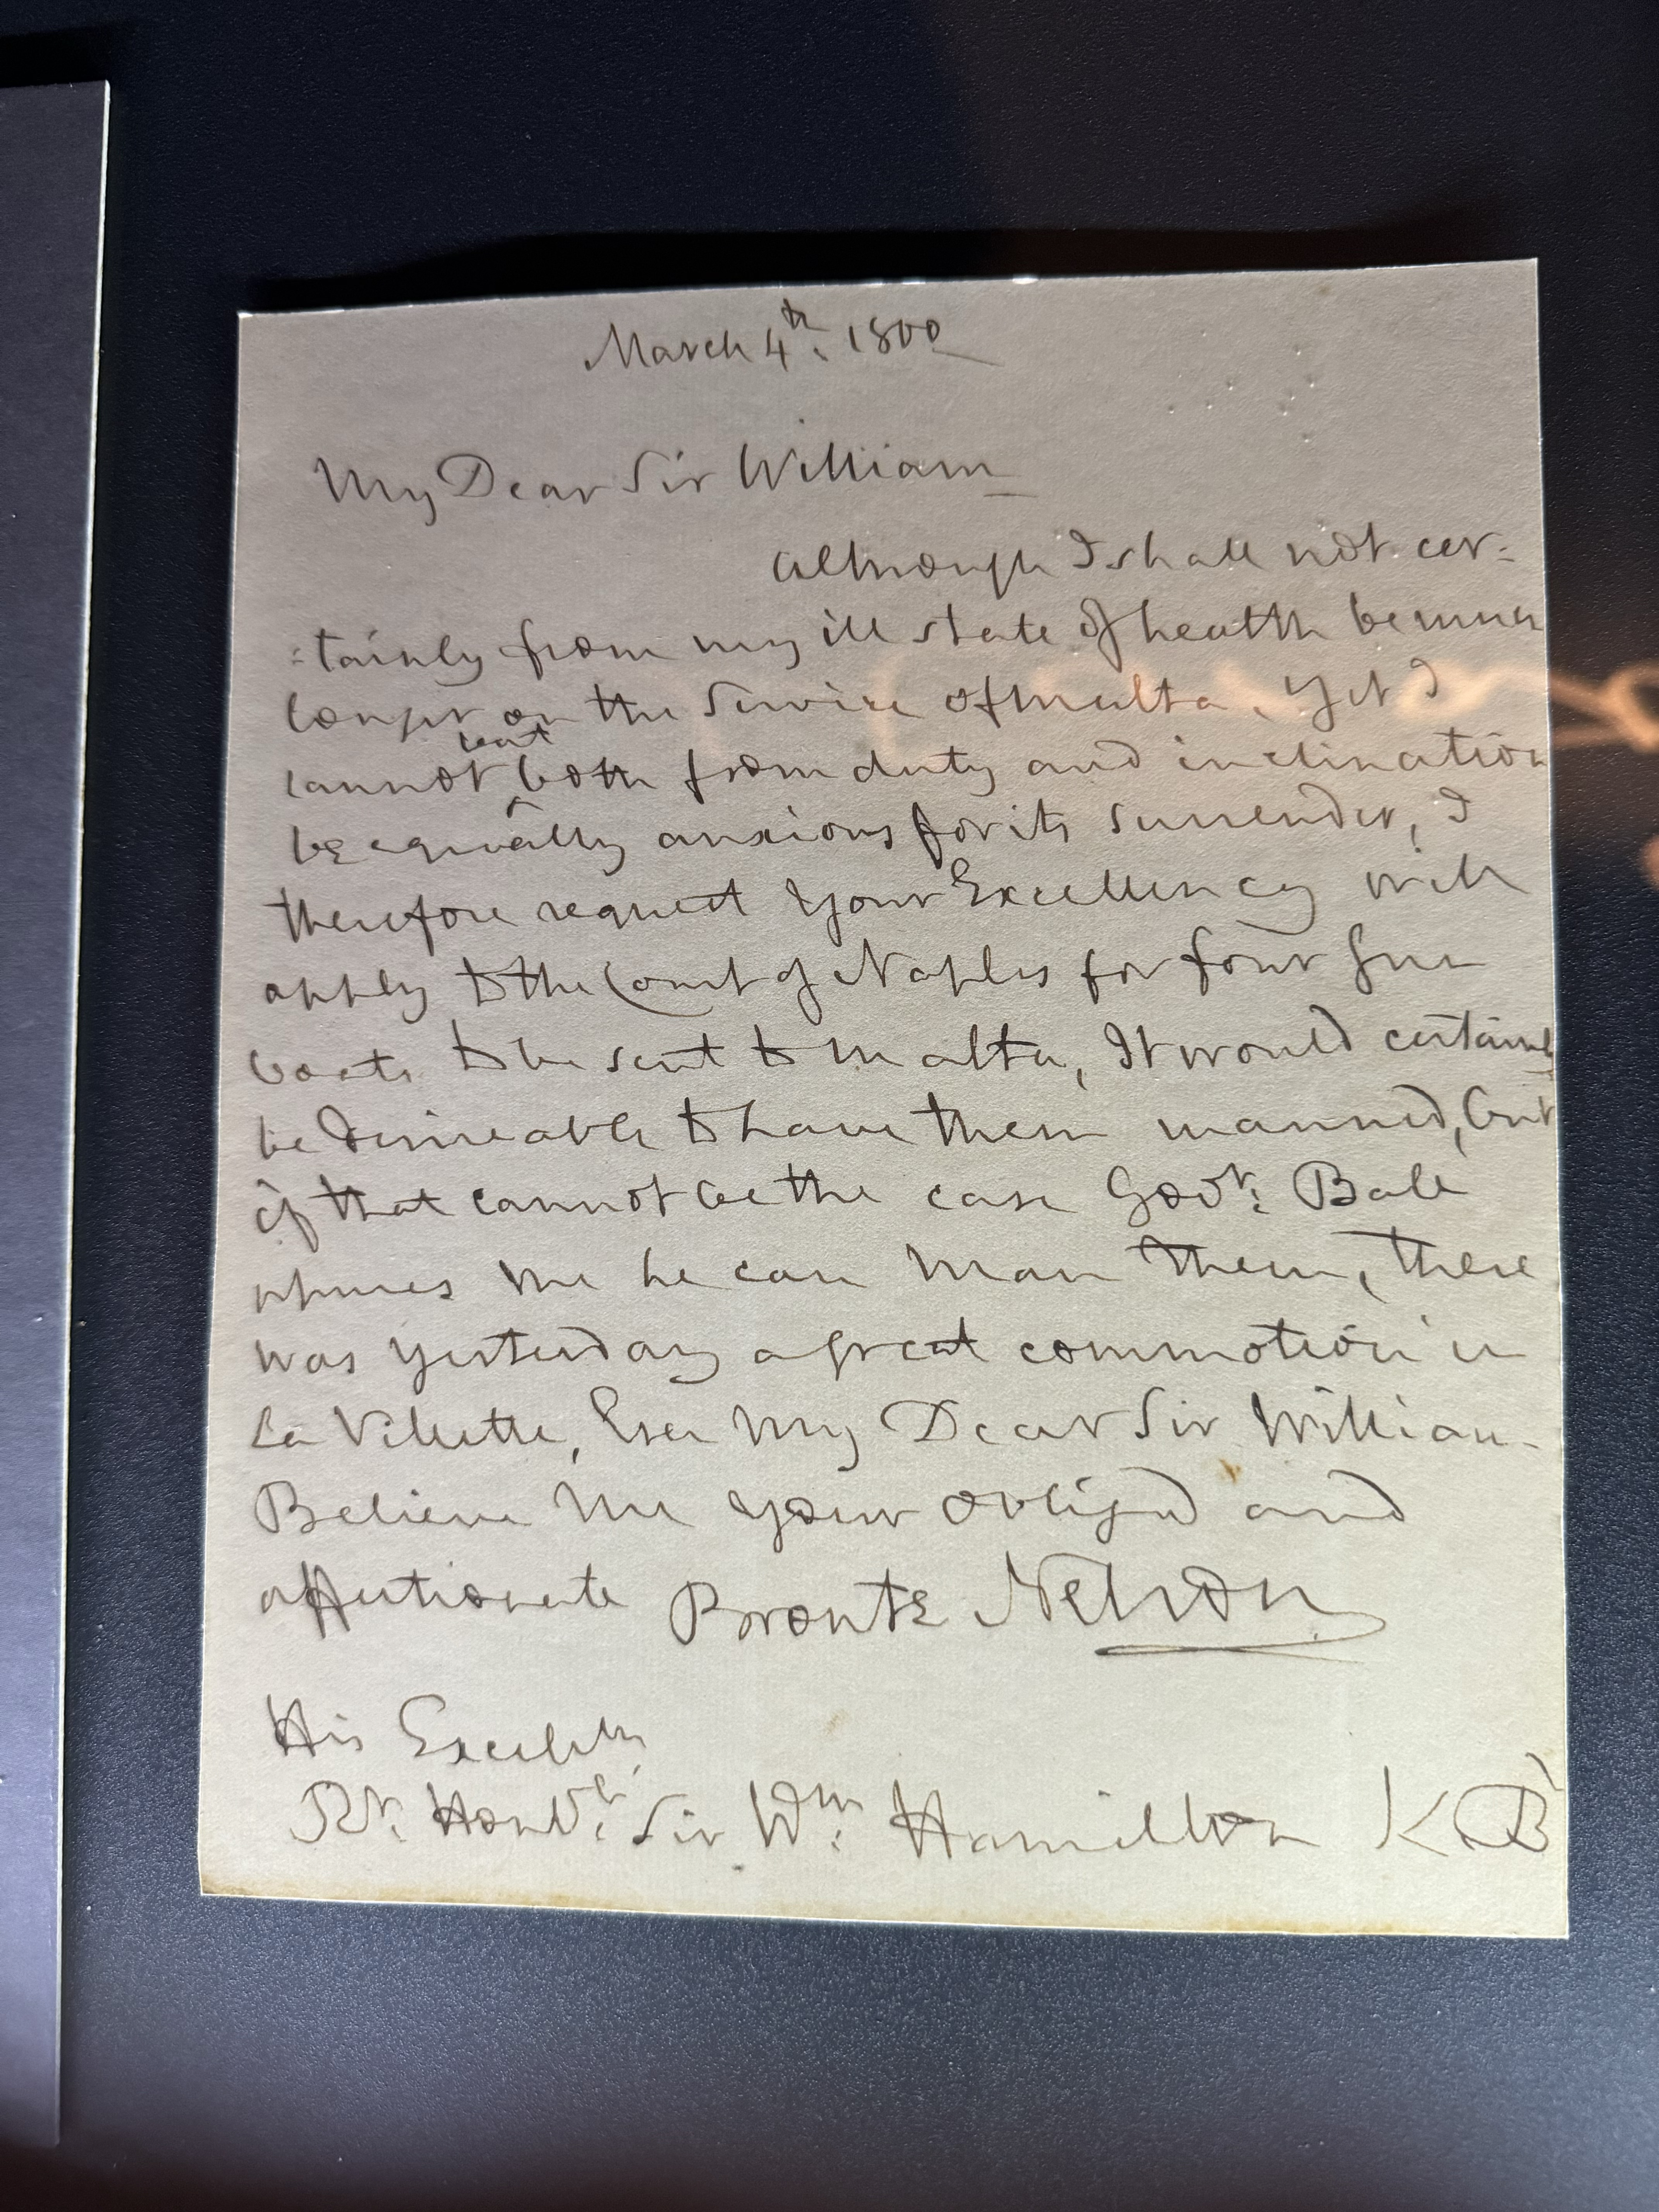 March 4th. 1800
My Dear Sir William
Although I shall not cer=
=tainly from my ill state of health be much
longer on the Service of Malta, Yet I
but
cannot ^ both from duty and inclination
be equally anxious for its surrender, I
therefore request Your Excellency will
apply to the Court of Naples for four Gun
boats to be sent to Malta, It would certainly
be desireable to have them manned, but
if that cannot be the case Govr: Ball
me he can man them, there
was yesterday a great commotion in
La Villette, Ever My Dear Sir William
Believe Me your obliged and
affectionate Bronte Nelson
His Excelly
Rt. Honble: Sir Wm: Hamilton KB